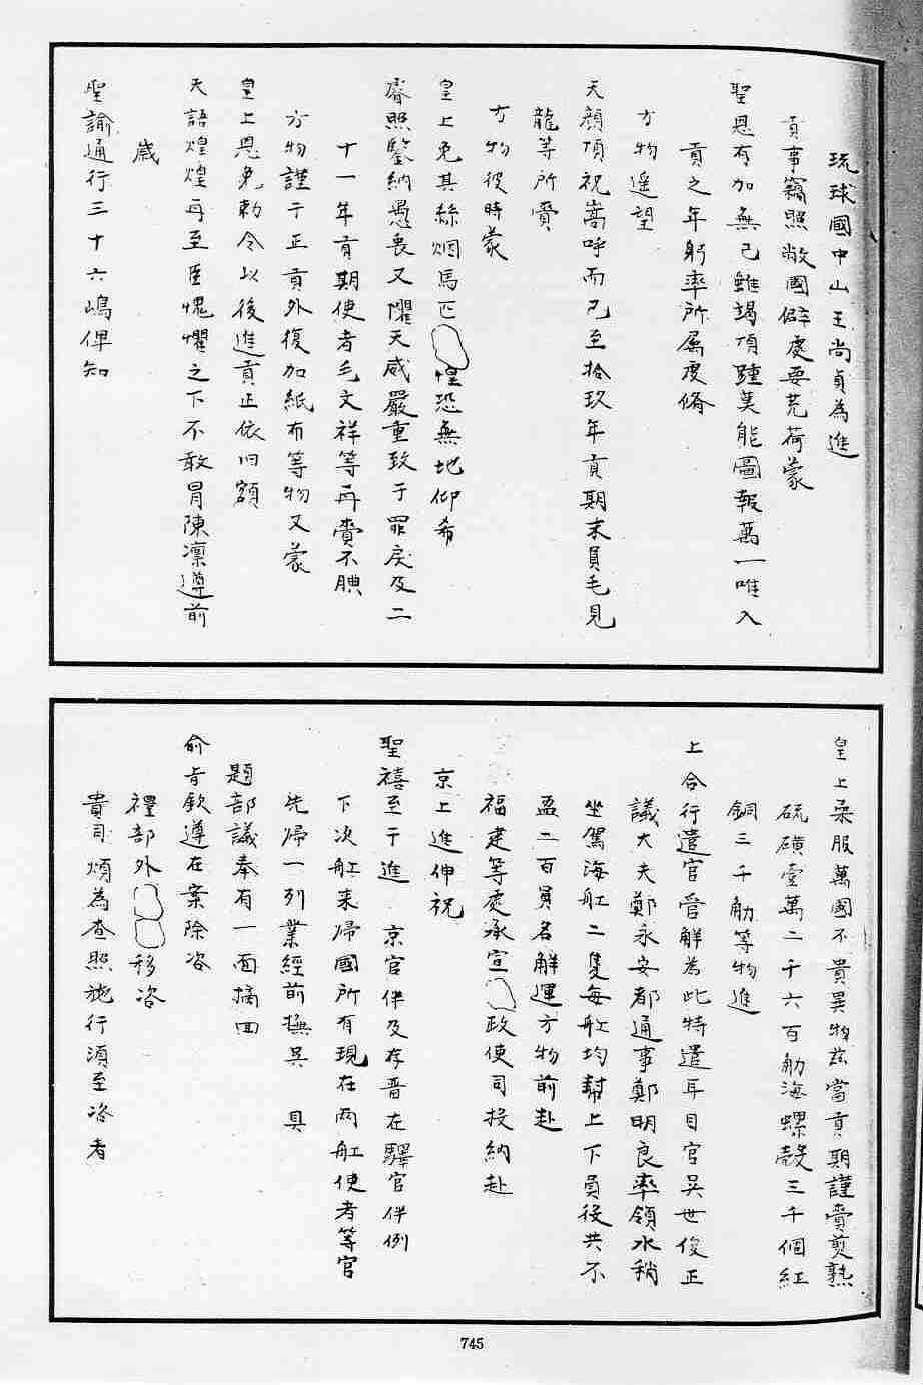 琉球國中山王尚貞為進
貢事竊照敝國僻處要荒荷蒙
聖恩有加無已雖竭頂踵莫能圖報萬一唯入
貢之年躬率所屬虔脩
方物遥望
天顔頂祝嵩呼而已至拾玖年貢期末員毛見
龍等所賷
方物彼時蒙
皇上免其絲烟馬匹惶恐無地仰希
睿照鑒納愚衷又懼天威嚴重致于罪戾及二
十一年貢期使者毛文祥等再賷不腆
方物謹于正貢外復加紙布等物又蒙
皇上恩免勅令以後進貢正依旧額
天語煌煌再至臣愧懼之下不敢冐陳凛遵前
歲
聖諭通行三十六嶋俾知
皇上柔服萬國不貴異物兹當貢期謹賷煎熟
硫磺壹萬二千六百觔海螺殼三千個紅
銅三千觔等物進
上合行遣官管觧為此特遣耳目官吴世俊正
議大夫鄭永安都通事鄭明良率領水稍
坐駕海舡二隻每舡均幇上下員役共不
盈二百員名觧運方物前赴
福建等處承宣政使司投納赴
京上進伸祝
聖禧至于進京官伴及存畨在驛官伴例
下次舡来歸國所有現在两舡使者等官
先歸一列業經前撫吴具
題部議奉有一面摘回
俞㫖欽遵在案除咨
禮部外移咨
貴司煩為查照施行湏至咨者
745